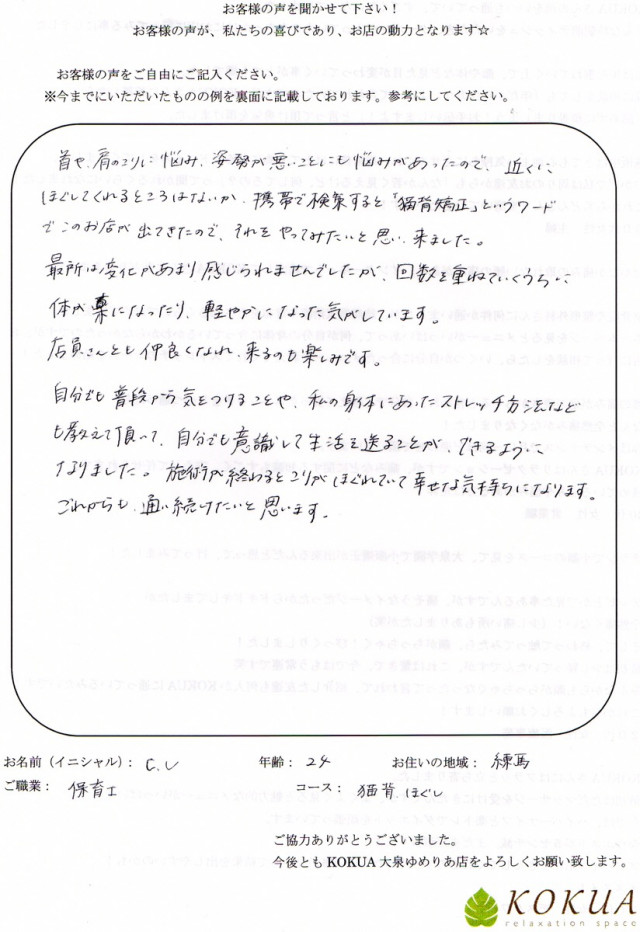 お客様の声を聞かせて下さい！
お客様の声が、私たちの喜びであり、お店の動力となります☆
お客様の声をご自由にご記入ください。
※今までにいただいたものの例を裏面に記載しております。参考にしてください。
首や、肩のこりに悩み、姿勢が悪いことにも悩みがあったので、近くに
ほぐしてくれるところはないか、携帯で検索すると「猫背矯正」というワード
でこのお店が出てきたので、それをやってみたいと思い、来ました。
最所は変化があまり感じられませんでしたが、回数を重ねていくうちに
体が楽になったり、軽やかになった気がしています。
店員さんとも仲良くなれ、来るのも楽しみです。
自分でも普段から気をつけることや、私の身体にあったストレッチ方法など
も教えて頂いて、自分でも意識して生活を送ることが、できるように
なりました。施術が終わるとこりがほぐれていて幸せな気持ちになります。
これからも、通い続けたいと思います。
お名前（イニシャル）：C.U 年齢：24 お住いの地域：練馬
ご職業：保育士 コース：猫背、ほぐし
ご協力ありがとうございました。
今後とも KOKUA 大泉ゆめりあ店をよろしくお願い致します。
KOKUA
relaxation space